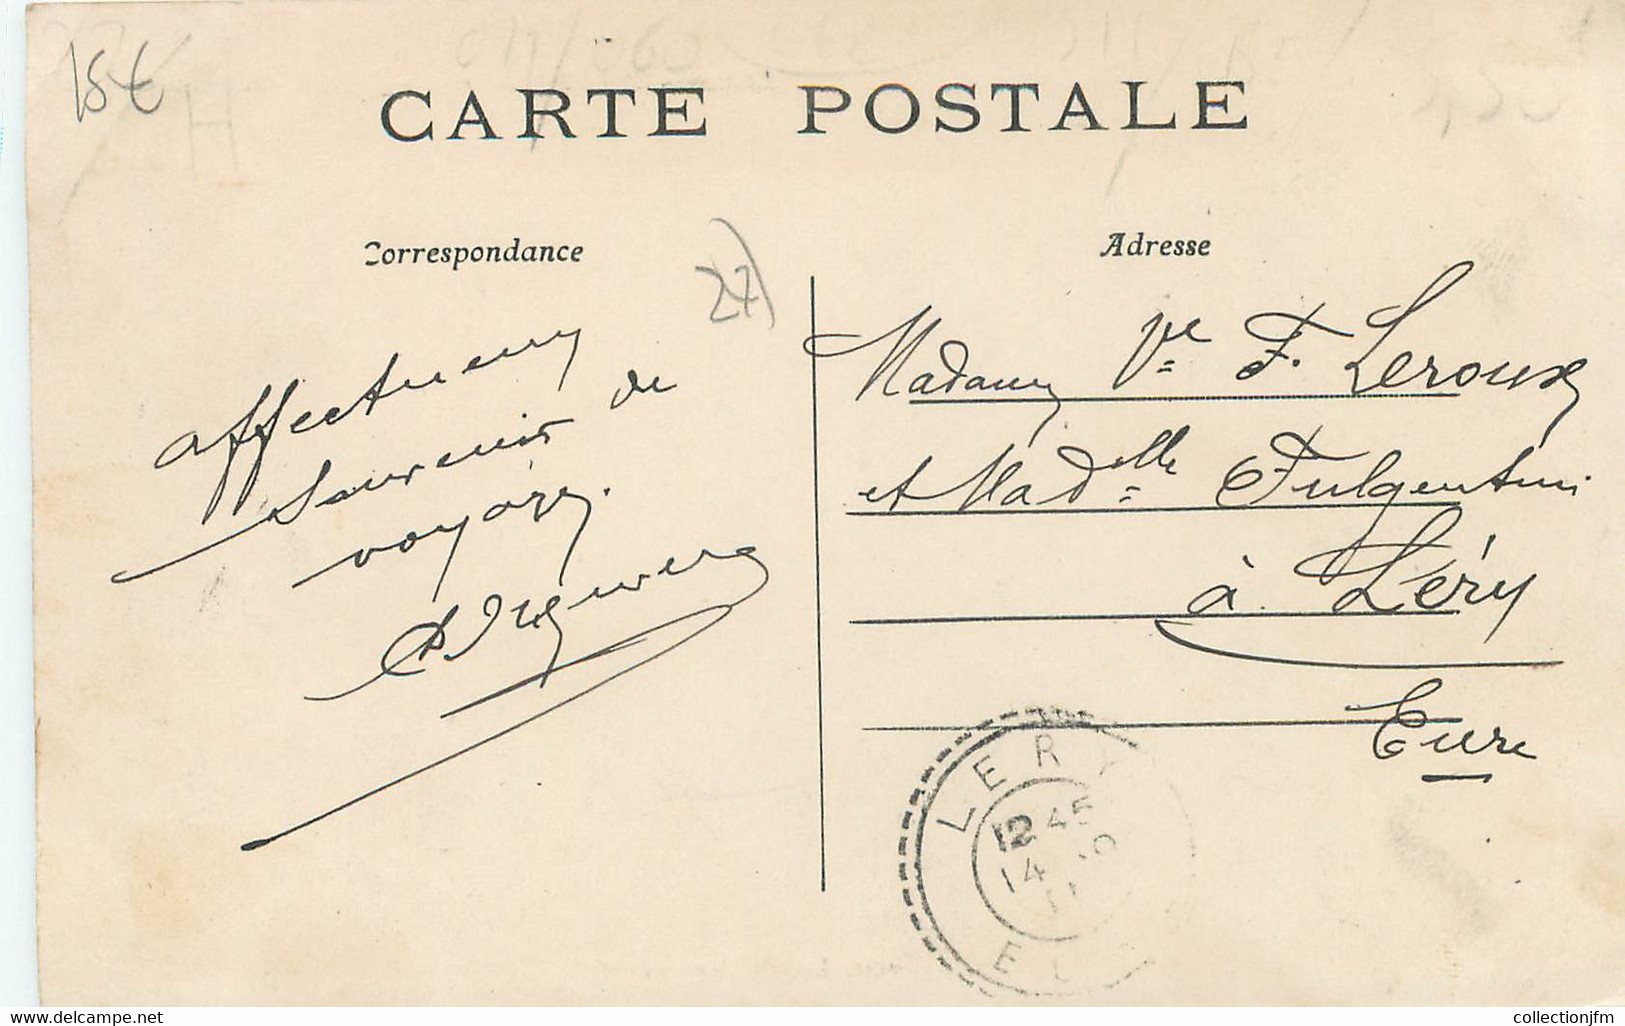 15€
CARTE POSTALE
Correspondance
Adresse
27)
affectueux
souvenir de
voyage.
Madame Vve F. Leroux
et Madelle Fulgentine
à Léry
Eure
LERY
12 45
14
EU
delcampe.net
collectionjfm